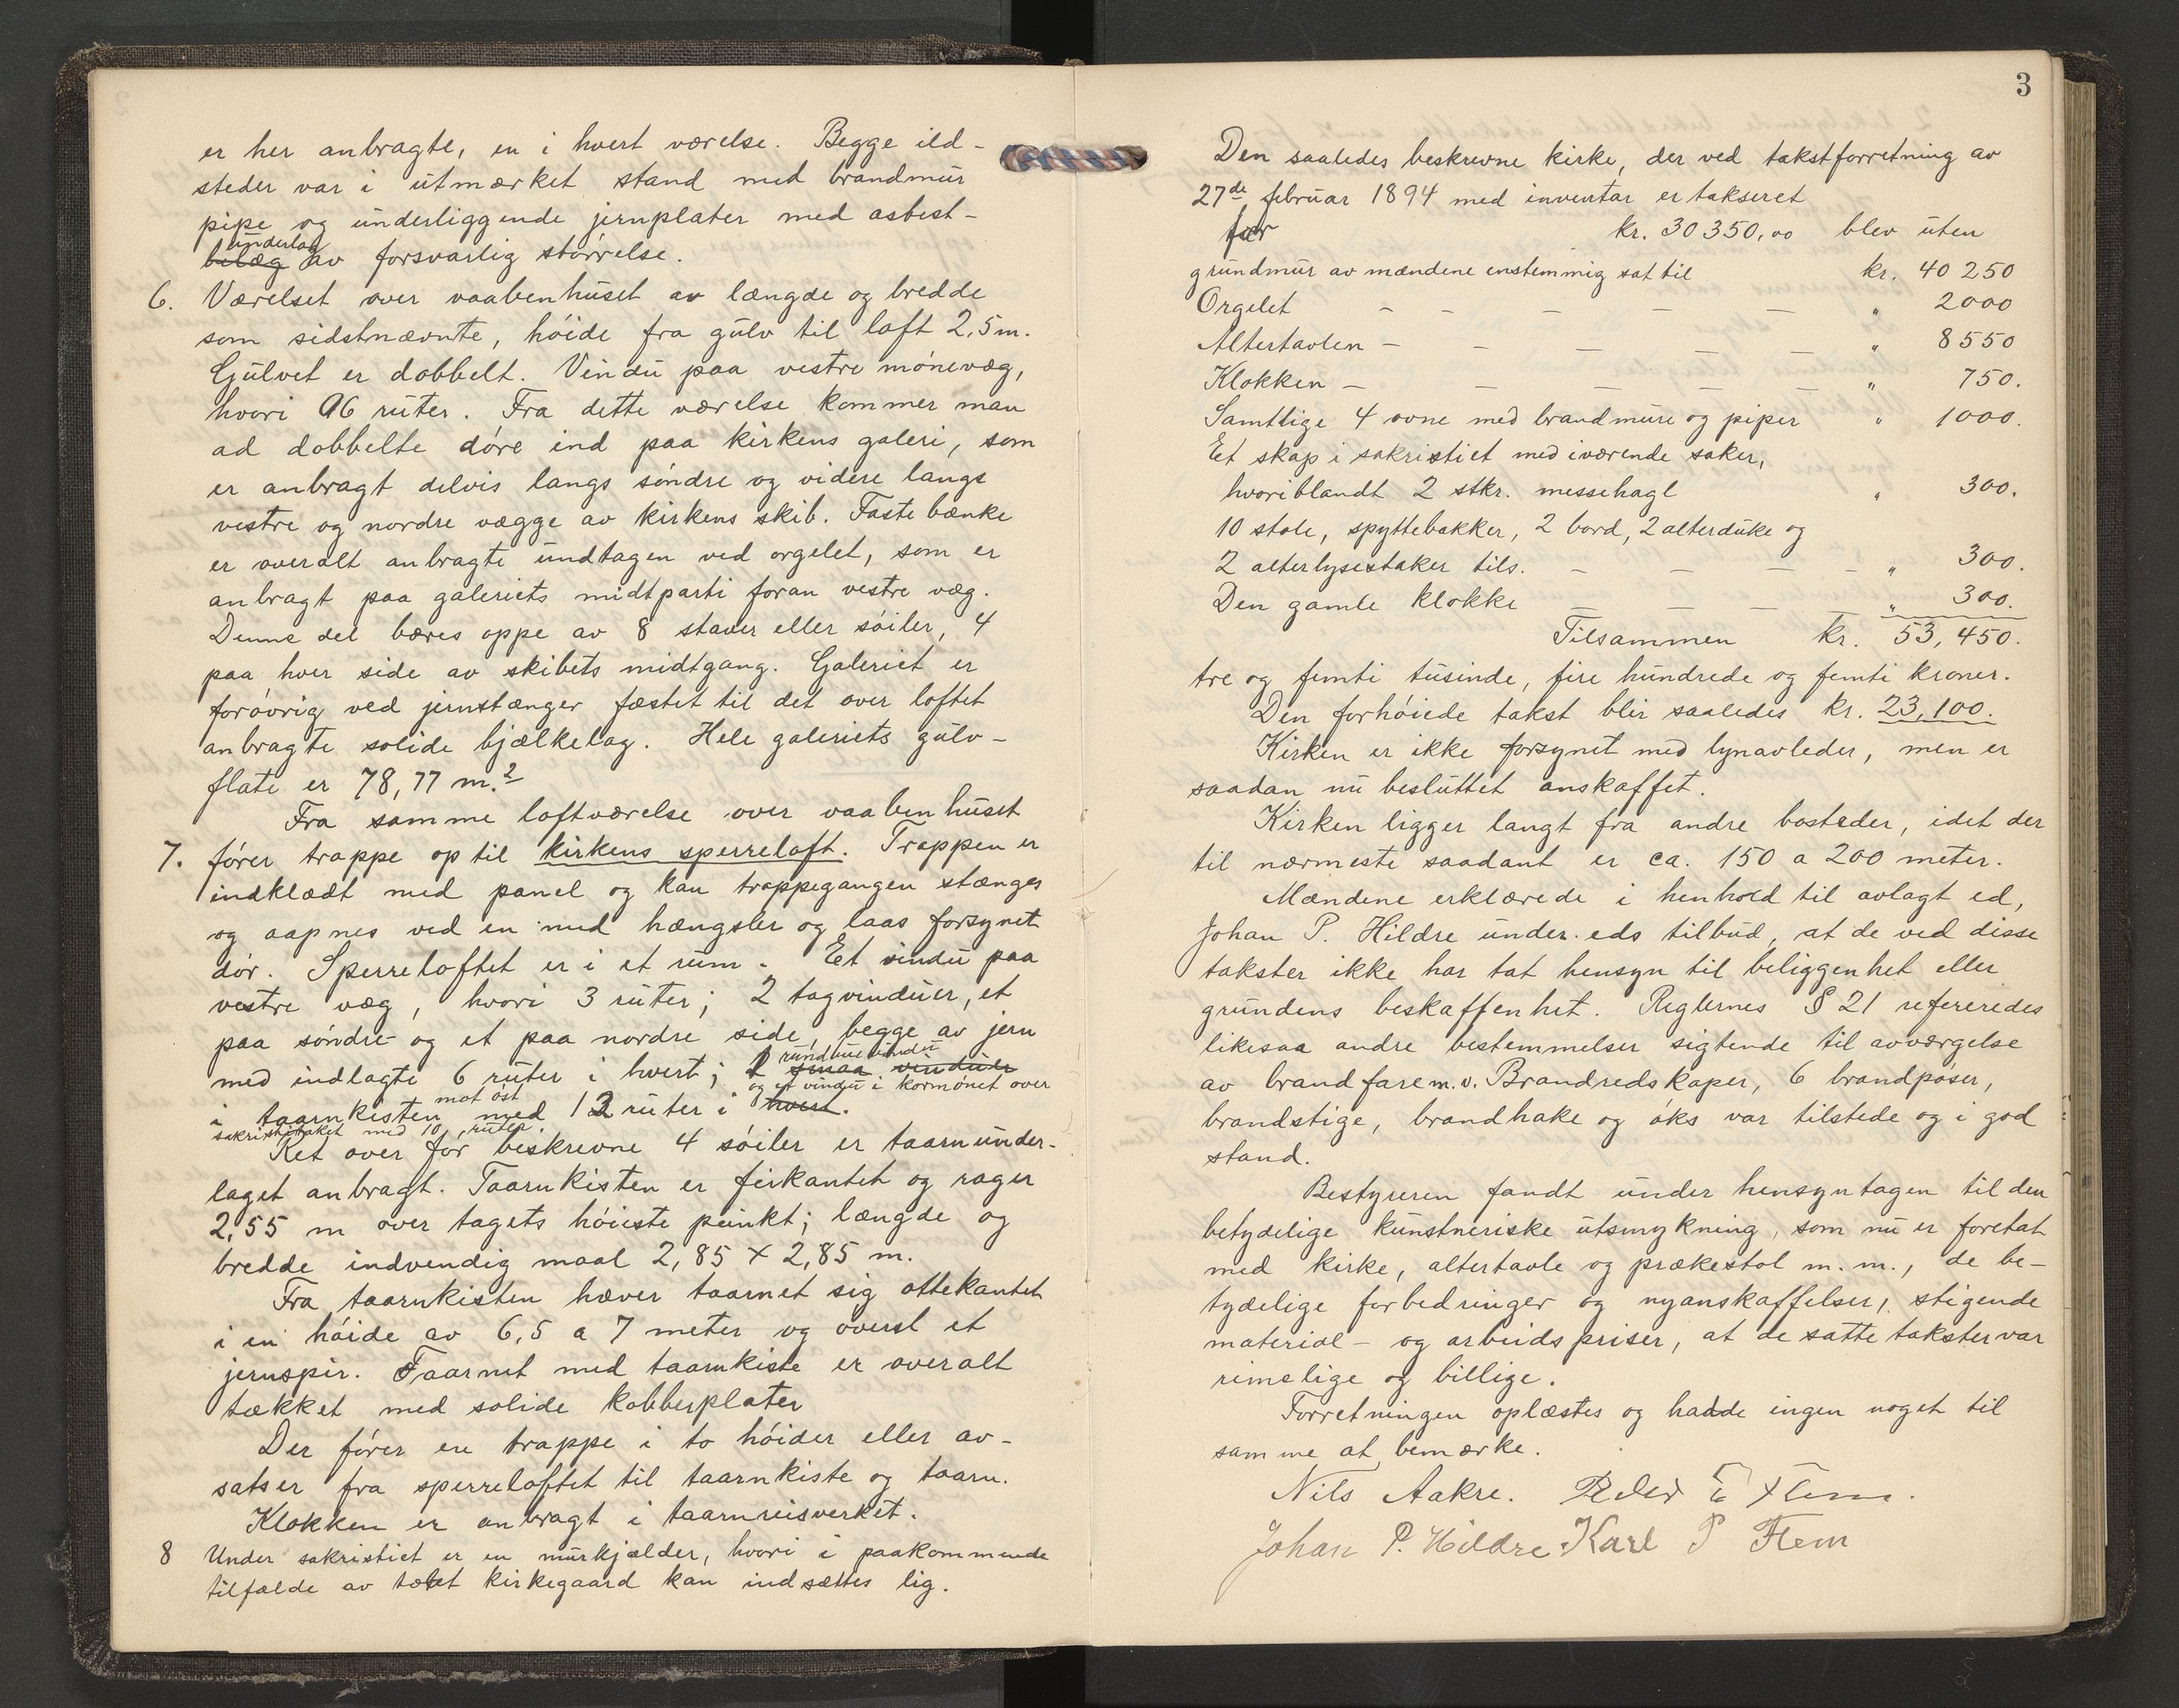 er her anbragte, en i hvert værelse. Begge ild-
steder var i utmærket stand med brandmur
pipe og underliggende jernplater med asbest-
underlag
belæg av forsvarlig størrelse.
6. Værelset over vaabenhuset av længde og bredde
som sidstnævnte, høide fra gulv til loft 2,5 m.
Gulvet er dobbelt. Vindu paa vestre mønevæg,
hvori 96 ruter. Fra dette værelse kommer man
ad dobbelte døre ind paa kirkens galeri, som
er anbragt delvis langs søndre og videre langs
vestre og nordre vægge av kirkens skib. Faste bænke
er overalt anbragte undtagen ved orgelet, som er
anbragt paa galeriets midtparti foran vestre væg.
Denne del bæres oppe av 8 staver eller søiler, 4
paa hver side av skibets midtgang. Galeriet er
forøvrig ved jernstænger fæstet til det over loftet
anbragte solide bjælkelag. Hele galeriets gulv-
flate er 78,77 m.²
Fra samme loftværelse over vaabenhuset
7. fører trappe op til kirkens sperreloft. Trappen er
indklædt med panel og kan trappegangen stænges
og aapnes ved en med hængsler og laas forsynet
dør. Sperreloftet er i et rum. Et vindu paa
vestre væg, hvori 3 ruter; 2 tagvinduer, et
paa søndre og et paa nordre side, begge av jern
rundbuevindu
med indlagte 6 ruter i hvert; 1 smaa vinduer
mot øst og et vindu i kormønet over
i taarnkisten med 12 ruter i hvert.
sakristitaket med 10 ruter.
Ret over før beskrevne 4 søiler er taarnunder-
laget anbragt. Taarnkisten er firkantet og rager
2,55 m over tagets høieste punkt; længde og
bredde indvendig maal 2,85 x 2,85 m.
Fra taarnkisten hæver taarnet sig ottekantet
i en høide av 6,5 a 7 meter og øverst et
jernspir. Taarnet med taarnkiste er overalt
tækket med solide kobberplater
Der fører en trappe i to høider eller av-
satser fra sperreloftet til taarnkiste og taarn.
Klokken er anbragt i taarnreisverket.
8 Under sakristiet er en murkjælder, hvori i paakommende
tilfælde av tælet kirkegaard kan indsættes lig.
3
Den saaledes beskrevne kirke, der ved takstforretning av
27de februar 1894 med inventar er takseret
for kr. 30350,00 blev uten
grundmur av mændene enstemmig sat til kr. 40 250
Orgelet - - - - - " 2000
Altertavlen - - - - - " 8550
Klokken - - - - - " 750.
Samtlige 4 ovne med brandmure og piper " 1000.
Et skap i sakristiet med iværende saker,
hvoriblandt 2 stkr. messehagl " 300.
10 stole, spyttebakker, 2 bord, 2 alterduke og
2 alterlysestaker tils. - - - - " 300.
Den gamle klokke - - - - " 300.
Tilsammen kr. 53,450.
tre og femti tusinde, fire hundrede og femti kroner.
Den forhøiede takst blir saaledes kr. 23,100.
Kirken er ikke forsynet med lynavleder, men er
saadan nu besluttet anskaffet.
Kirken ligger langt fra andre bosteder, idet der
til nærmeste saadant er ca. 150 a 200 meter.
Mændene erklærede i henhold til avlagt ed,
Johan P. Hildre under eds tilbud, at de ved disse
takster ikke har tat hensyn til beliggenhet eller
grundens beskaffenhet. Reglernes § 21 refereredes
likesaa andre bestemmelser sigtende til avværgelse
av brandfare m.v. Brandredskaper, 6 brandpøser,
brandstige, brandhake og øks var tilstede og i god
stand.
Bestyreren fandt under hensyntagen til den
betydelige kunstneriske utsmykning, som nu er foretat
med kirke, altertavle og prækestol m.m., de be-
tydelige forbedringer og nyanskaffelser, stigende
material- og arbeidspriser, at de satte takster var
rimelige og billige.
Forretningen oplæstes og hadde ingen noget til
samme at bemærke.
Nils Aakre. Peder E Flem.
Johan P. Hildre Karl P Flem